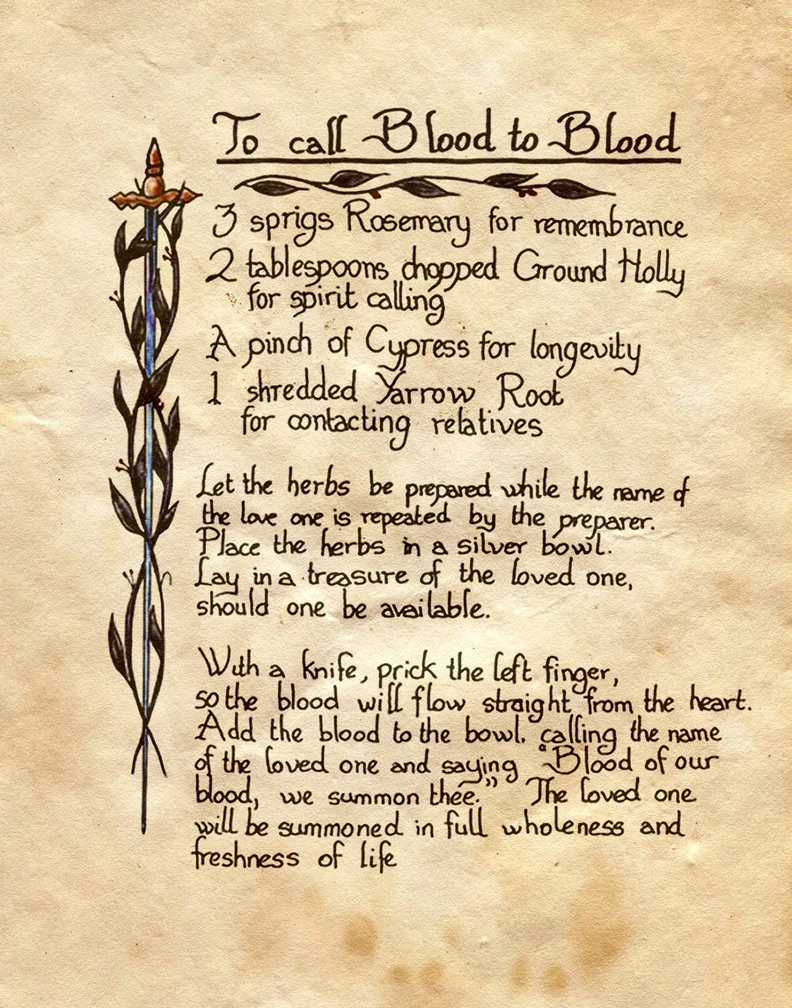 To call Blood to Blood
3 sprigs Rosemary for remembrance
2 tablespoons chopped Ground Holly
for spirit calling
A pinch of Cypress for longevity
1 shredded Yarrow Root
for contacting relatives
Let the herbs be prepared while the name of
the love one is repeated by the preparer.
Place the herbs in a silver bowl.
Lay in a treasure of the loved one,
should one be available.
With a knife, prick the left finger,
so the blood will flow straight from the heart.
Add the blood to the bowl. calling the name
of the loved one and saying "Blood of our
blood, we summon thee." The loved one
will be summoned in full wholeness and
freshness of life